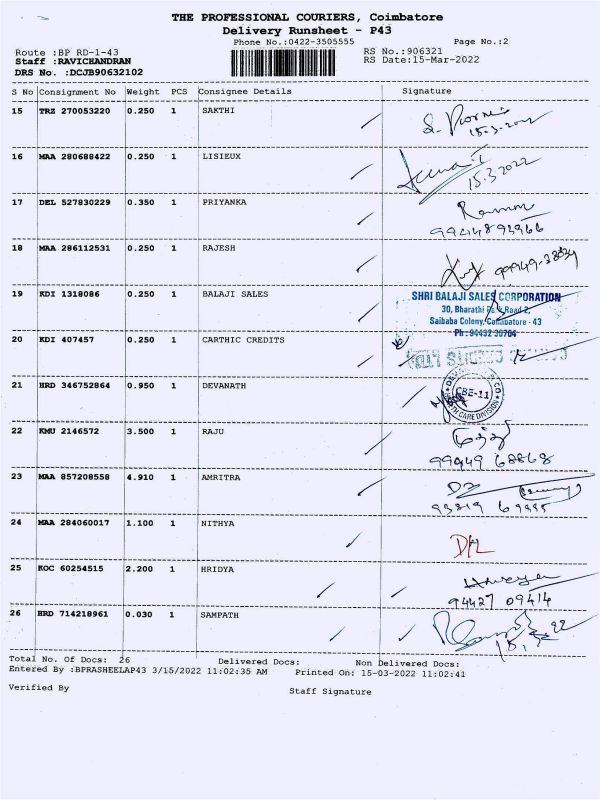 THE PROFESSIONAL COURIERS, Coimbatore
Delivery Runsheet - P43
Phone No.:0422-3505555 Page No.:2
Route :BP RD-1-43 RS No.:906321
Staff :RAVICHANDRAN RS Date:15-Mar-2022
DRS No. :DCJB90632102
S No Consignment No Weight PCS Consignee Details Signature
15 TRZ 270053220 0.250 1 SAKTHI
15.3.2022
16 MAA 280688422 0.250 1 LISIEUX
15.3.2022
17 DEL 527830229 0.350 1 PRIYANKA
18 MAA 286112531 0.250 1 RAJESH
19 KDI 1318086 0.250 1 BALAJI SALES
SHRI BALAJI SALES CORPORATION
30, Bharathi Park Road 2,
Saibaba Colony, Coimbatore - 43
Ph: 94432 30704
20 KDI 407457 0.250 1 CARTHIC CREDITS
21 HRD 346752864 0.950 1 DEVANATH
CBE-11
HEALTH CARE DIVISION
22 KMU 2146572 3.500 1 RAJU
99949 68868
23 MAA 857208558 4.910 1 AMRITRA
24 MAA 284060017 1.100 1 NITHYA
D/L
25 KOC 60254515 2.200 1 HRIDYA
94427 09414
26 HRD 714218961 0.030 1 SAMPATH
Total No. Of Docs: 26 Delivered Docs: Non Delivered Docs:
Entered By :BPRASHEELAP43 3/15/2022 11:02:35 AM Printed On: 15-03-2022 11:02:41
Verified By Staff Signature